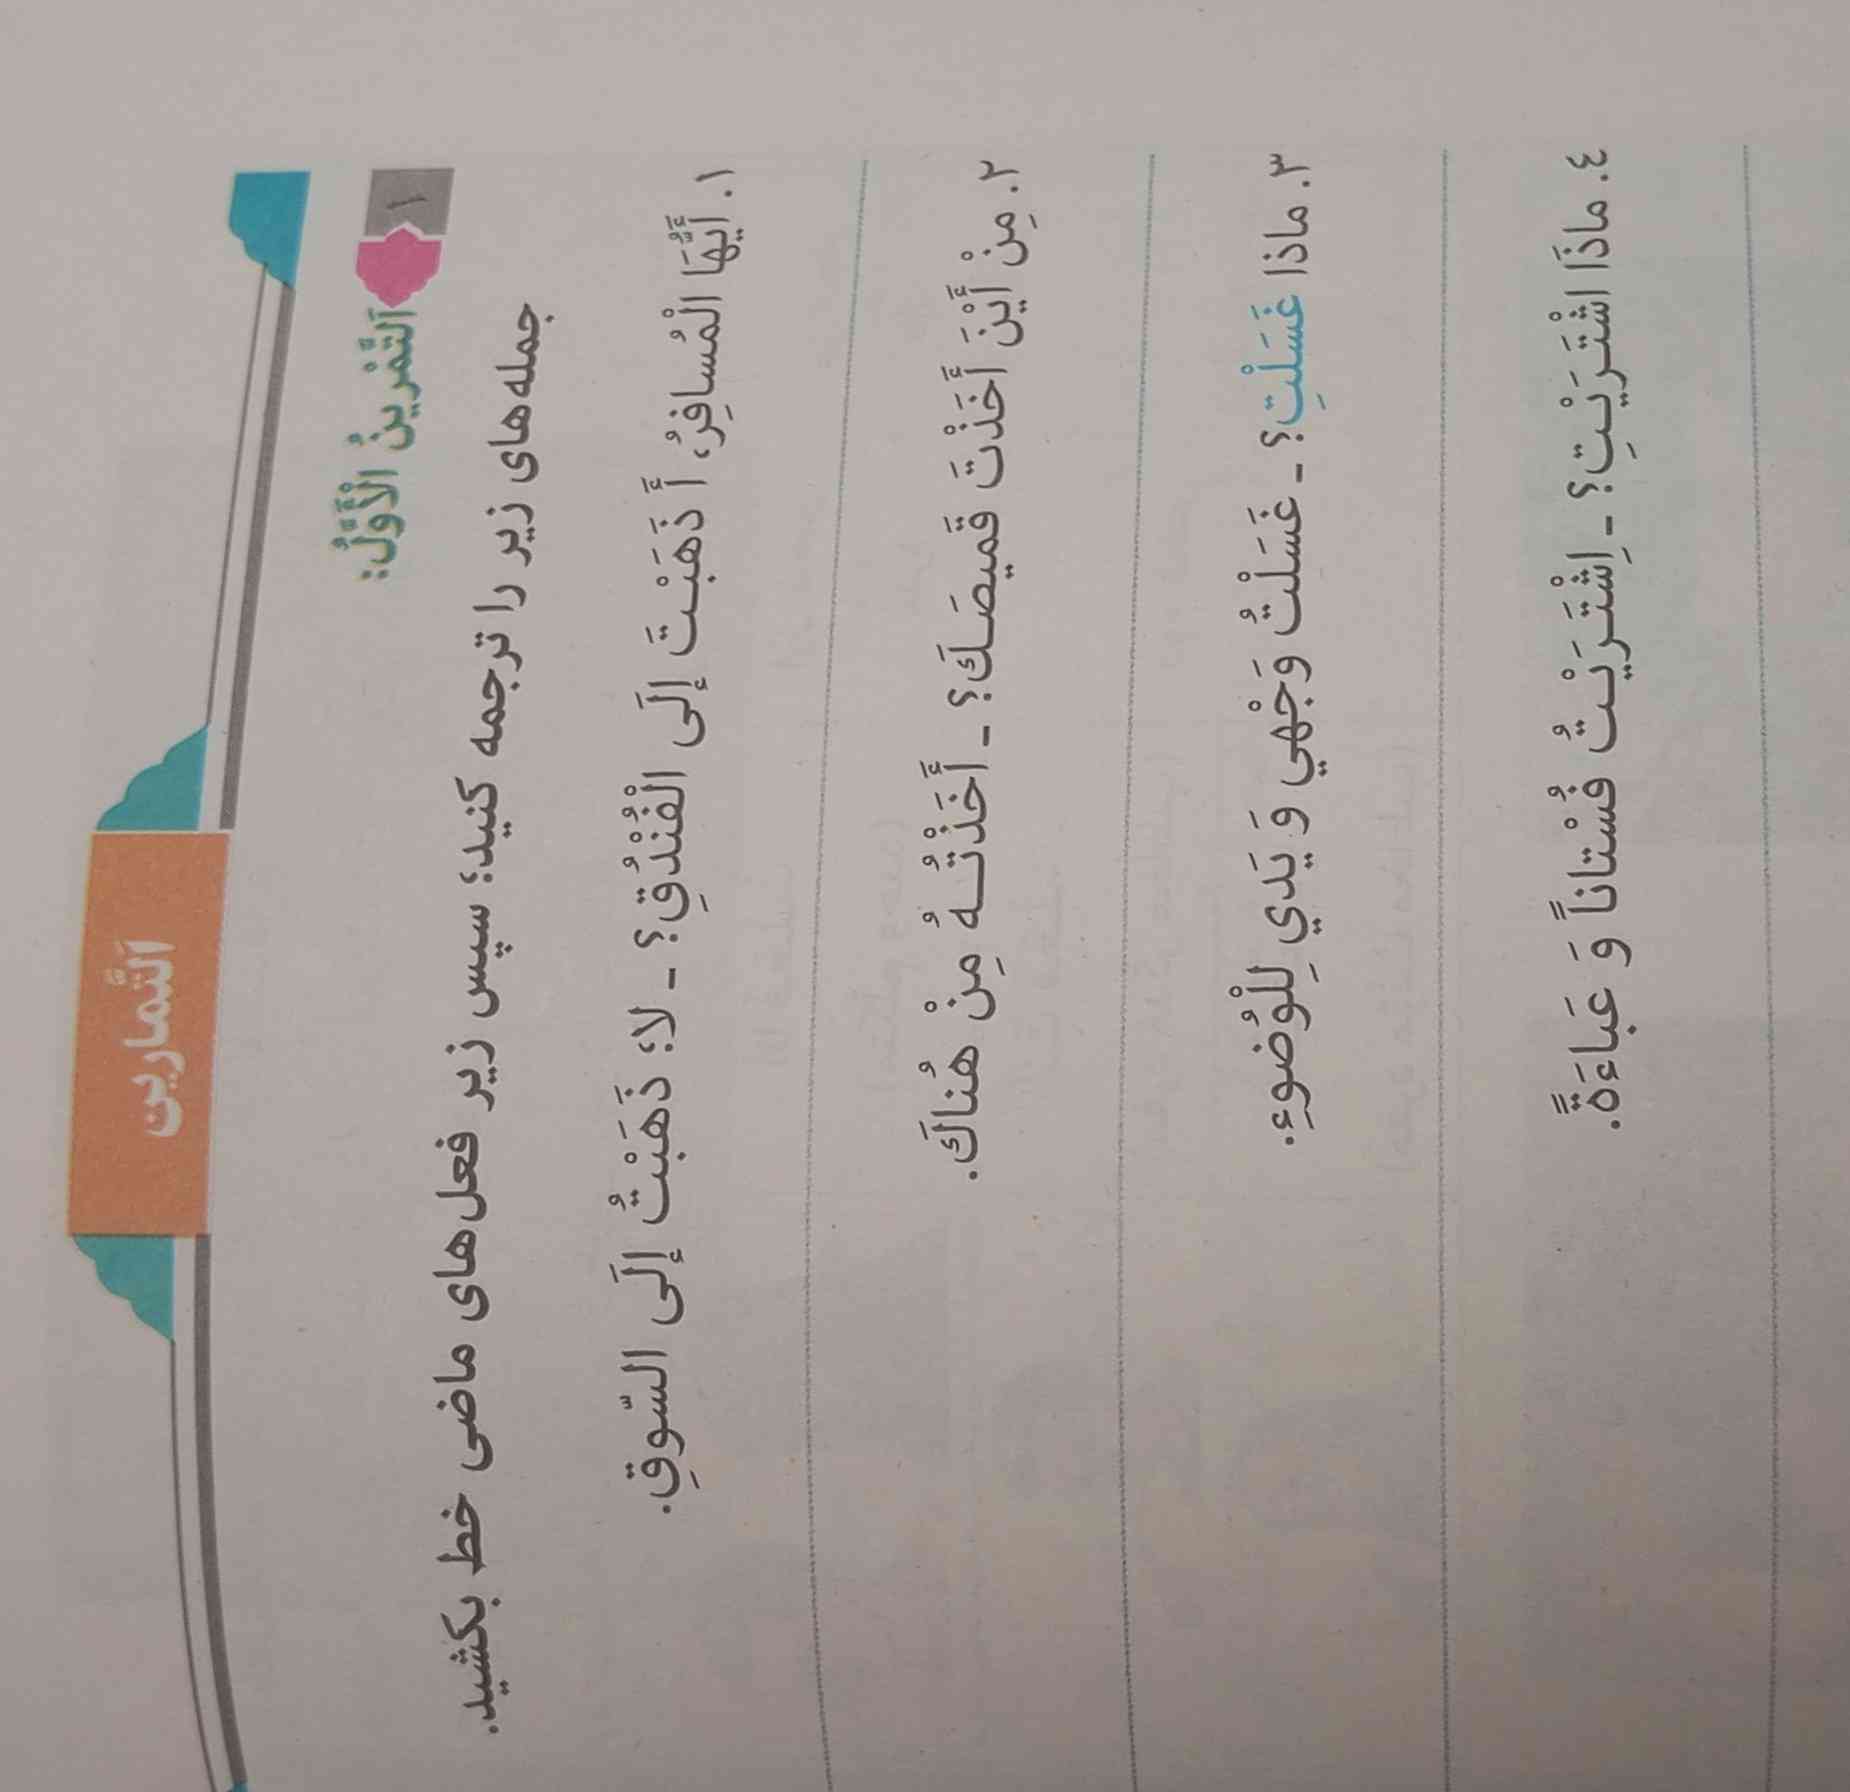 اَلتَّمارين
١ اَلتَّمْرينُ الْأَوَّلُ:
جمله‌های زیر را ترجمه کنید؛ سپس زیر فعل‌های ماضی خط بکشید.
١. أَيُّهَا الْمُسافِرُ، أَ ذَهَبْتَ إِلَى الْفُنْدُقِ؟ ـ لا؛ ذَهَبْتُ إِلَى السّوقِ.
٢. مِنْ أَيْنَ أَخَذْتَ قَميصَكَ؟ ـ أَخَذْتُهُ مِنْ هُناكَ.
٣. ماذا غَسَلْتِ؟ ـ غَسَلْتُ وَجْهي وَ يَدي لِلْوُضوءِ.
٤. ماذَا اشْتَرَيْتِ؟ ـ اِشْتَرَيْتُ فُسْتاناً وَ عَباءَةً.